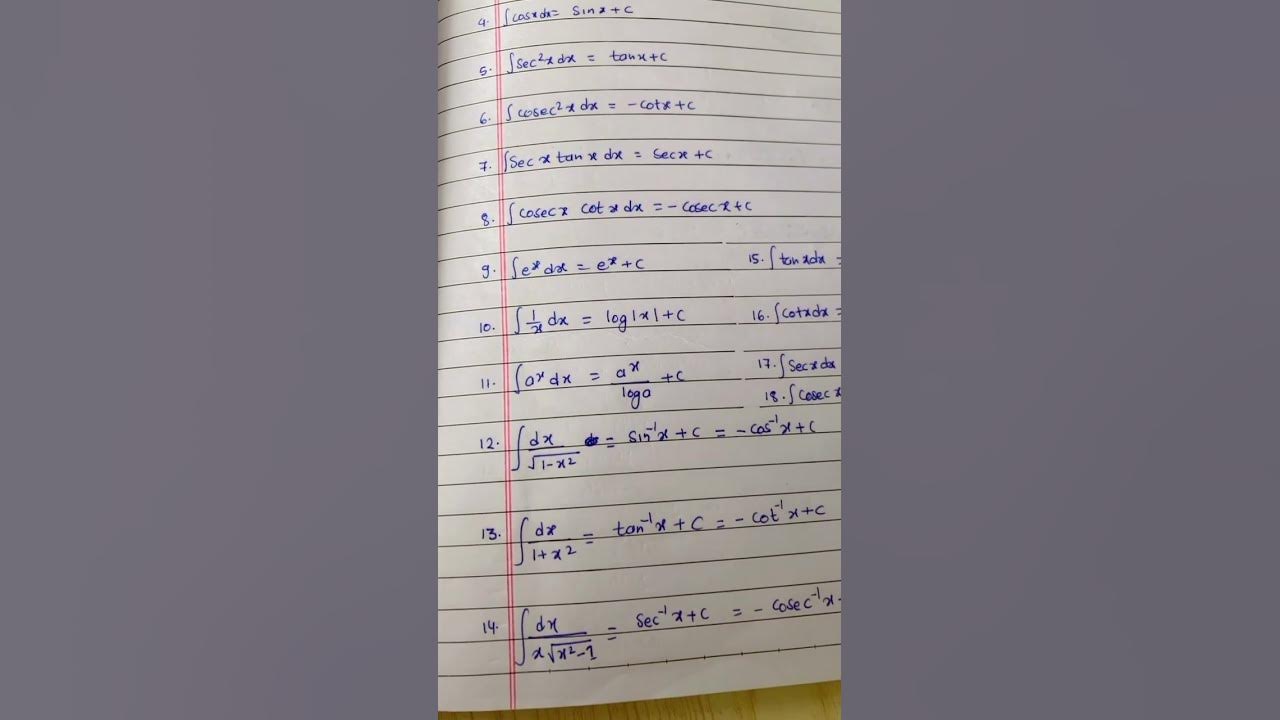 4. ∫cosx dx = sinx + c
5. ∫sec²x dx = tanx + c
6. ∫cosec²x dx = -cotx + c
7. ∫sec x tan x dx = secx + c
8. ∫cosec x cot x dx = -cosec x + c
9. ∫eˣ dx = eˣ + c
10. ∫1/x dx = log|x| + c
11. ∫aˣ dx = aˣ/loga + c
12. ∫dx/√1-x² = sin⁻¹x + c = -cos⁻¹x + c
13. ∫dx/1+x² = tan⁻¹x + c = -cot⁻¹x + c
14. ∫dx/x√x²-1 = sec⁻¹x + c = -cosec⁻¹x
15. ∫tanxdx =
16. ∫cotxdx =
17. ∫secxdx
18. ∫cosec x